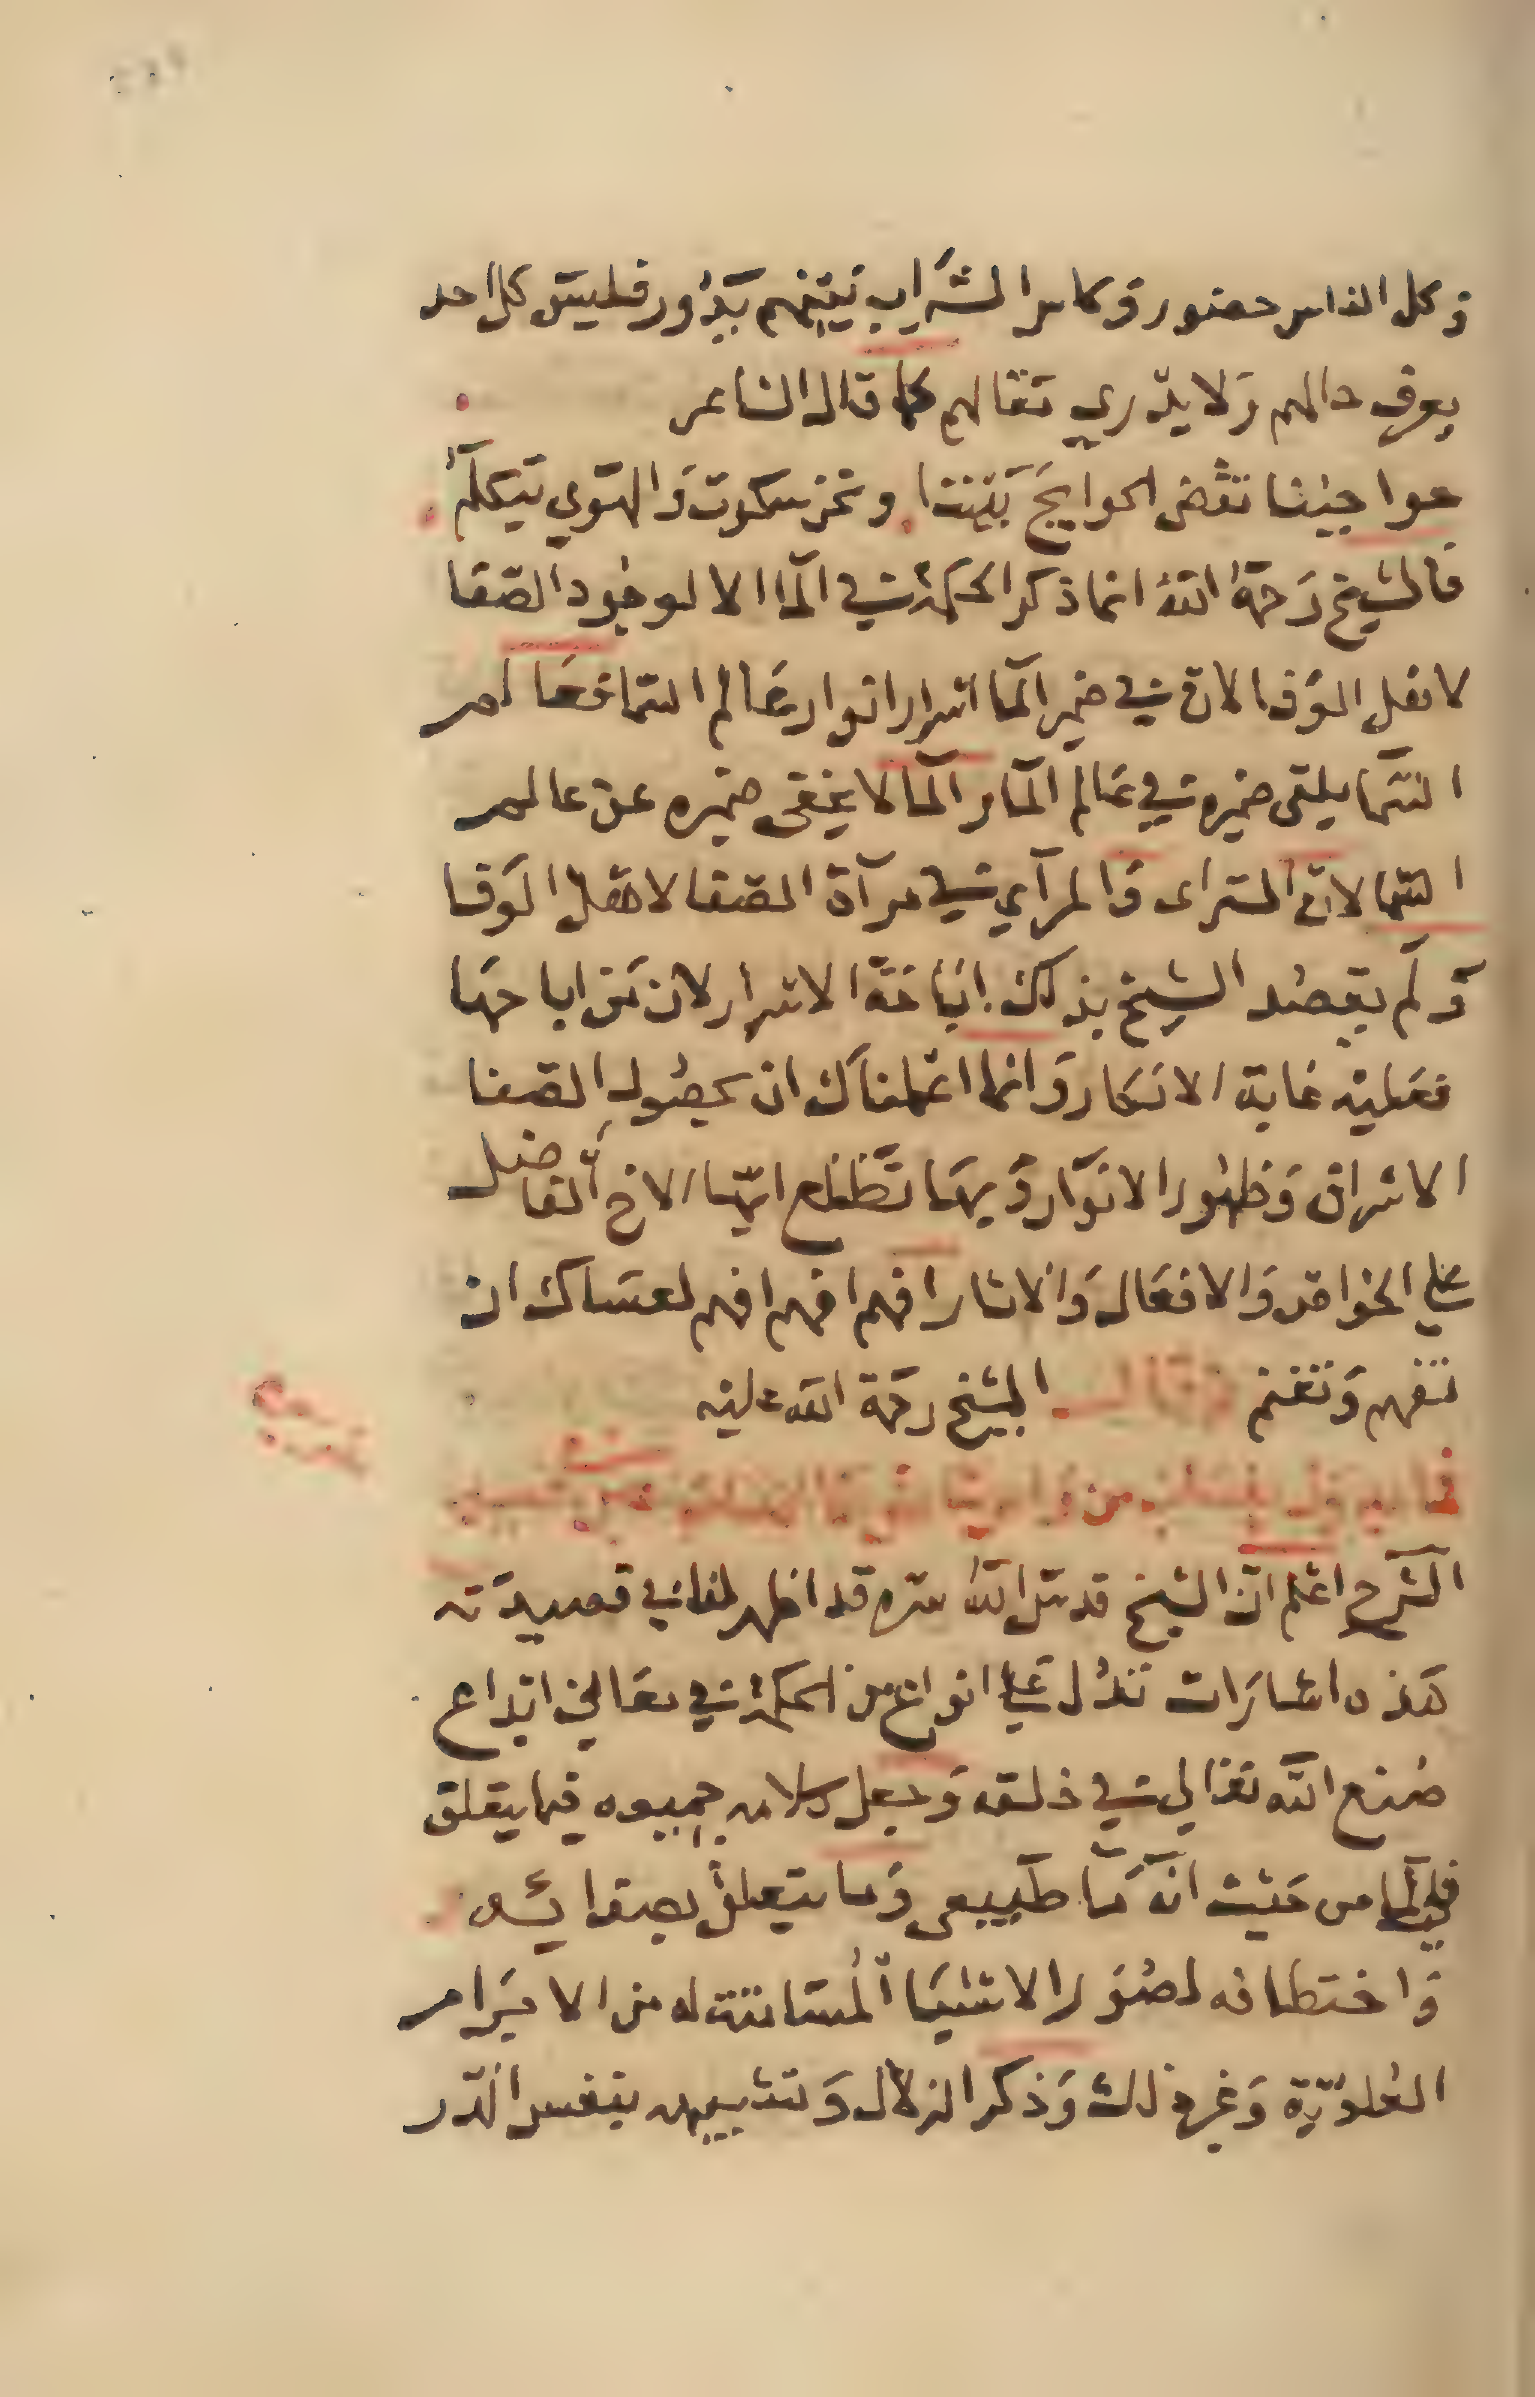 وكل الناس حضور وكاس الشراب بينهم يدور فليس كل احد
يعرف حالهم ولا يدري مقالهم كما قال الشاعر
حواجبنا تقضي الحوايج بيننا ونحن سكوت والهوي يتكلم
فالشيخ رحمة الله انما ذكر الحكمة في الما الا لوجود الصفا
لاهل الوفا لان في ضمير الما اسرار انوار عالم السما
السما يلقى ضميره في عالم الما والما لا يخفى ضميره عن عالم
السما لان المتراى والمرآي في مرآة الصفا لاهل الوفا
ولم يقصد الشيخ بذلك اباحة الاسرار لان من اباحها
فعليه غاية الانكار وانما اعلمناك ان بحصول الصفا
الاشراق وظهور الانوار وبها تطلع ايها الاخ الفاضل
علي الخواص والافعال والاثار افهم افهم افهم لعساك ان
تفهم وتغنم وقال الشيخ رحمة الله عليه
من
الشرح اعلم ان الشيخ قدس الله سره قد اظهر لنا في قصيدته
هذه اشارات تدل علي انواع من الحكمة في معاني ابداع
صنع الله تعالي في خلقه وجعل كلامه جميعه فيما يتعلق
في الما من حيث انه ما طبيعي وما يتعلق بصفائه
واختطافه لصور الاشيا المسامتة له من الاجرام
العلوية وغير ذلك وذكر الزلال وتشبيهه بنفس الدر